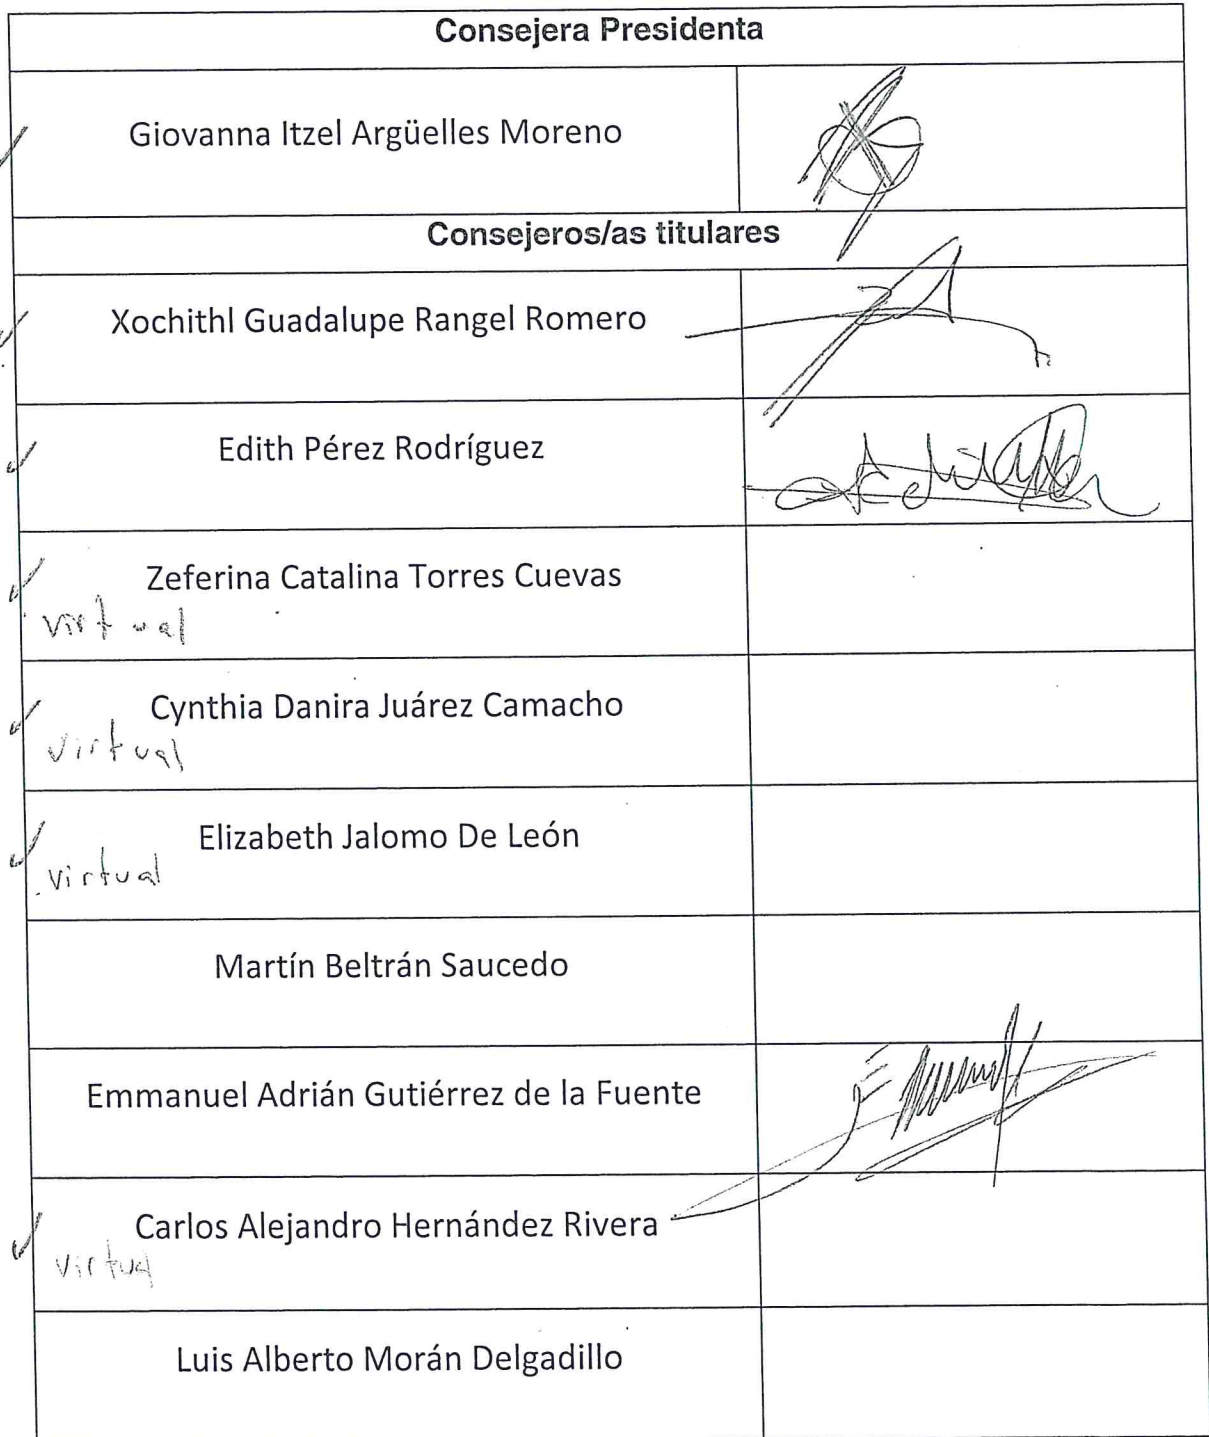 Consejera Presidenta
Giovanna Itzel Argüelles Moreno
Consejeros/as titulares
Xochithl Guadalupe Rangel Romero
Edith Pérez Rodríguez
Zeferina Catalina Torres Cuevas
virtual
Cynthia Danira Juárez Camacho
virtual
Elizabeth Jalomo De León
virtual
Martín Beltrán Saucedo
Emmanuel Adrián Gutiérrez de la Fuente
Carlos Alejandro Hernández Rivera
virtual
Luis Alberto Morán Delgadillo